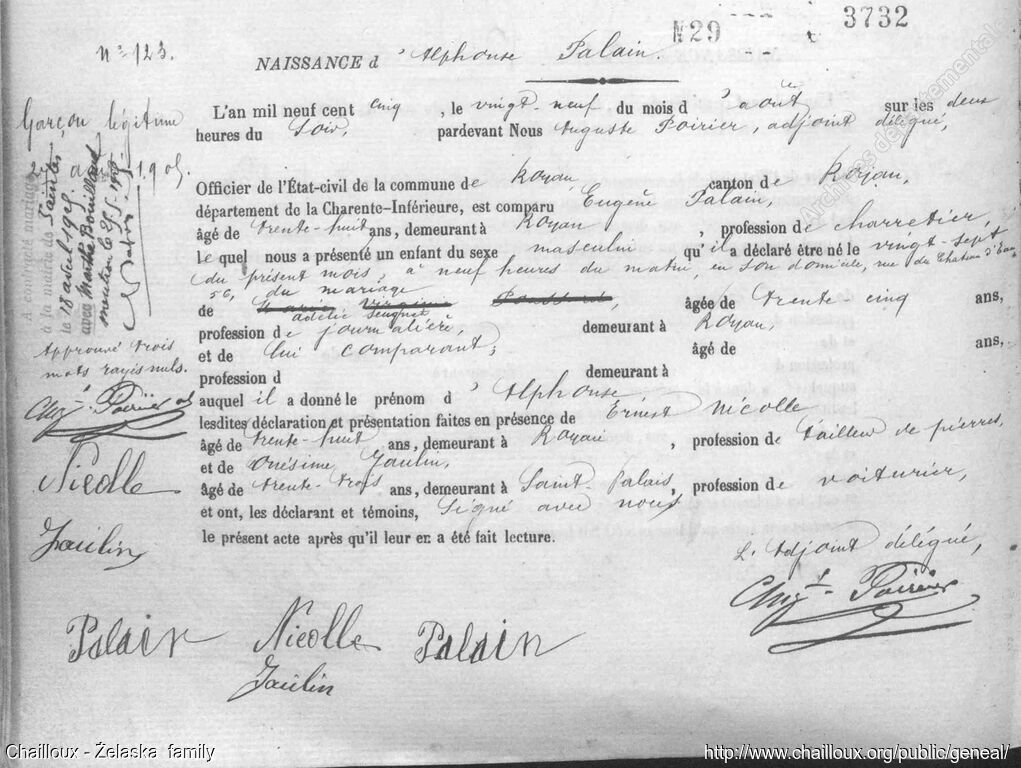 N29
3732
N° 123.
NAISSANCE d'Alphonse Palain.
Garçon légitime
27 août 1905.
A contracté mariage
à la mairie de Saintes
le 18 avril 1925
avec Marthe Bouillaud
mention
approuvé trois
mots rayés nuls.
Aug. Poirier
Nicolle
Jaulin
L'an mil neuf cent cinq, le vingt-neuf du mois d'août sur les deux
heures du soir, pardevant Nous Auguste Poirier, adjoint délégué,
Officier de l'État-civil de la commune de Royan, canton de Royan,
département de la Charente-Inférieure, est comparu Eugène Palain,
âgé de trente-huit ans, demeurant à Royan, profession de charretier,
lequel nous a présenté un enfant du sexe masculin qu'il a déclaré être né le vingt-sept
du présent mois, à neuf heures du matin, en son domicile, rue du Château d'Eau
56, du mariage
de Marie Virginie Poussard, âgée de trente-cinq ans,
adélie Seugnet
profession de journalière, demeurant à Royan,
et de lui comparant, âgé de ans,
profession d demeurant à
auquel il a donné le prénom d'Alphonse
lesdites déclaration et présentation faites en présence de Ernest Nicolle
âgé de trente-huit ans, demeurant à Royan, profession de tailleur de pierres,
et de Onésime Jaulin,
âgé de trente-trois ans, demeurant à Saint Palais, profession de voiturier,
et ont, les déclarant et témoins, signé avec nous
le présent acte après qu'il leur en a été fait lecture.
L'adjoint délégué,
Aug. Poirier
Palain Nicolle Palain
Jaulin
Archives départementale
Chailloux - Želaska family
http://www.chailloux.org/public/geneal/